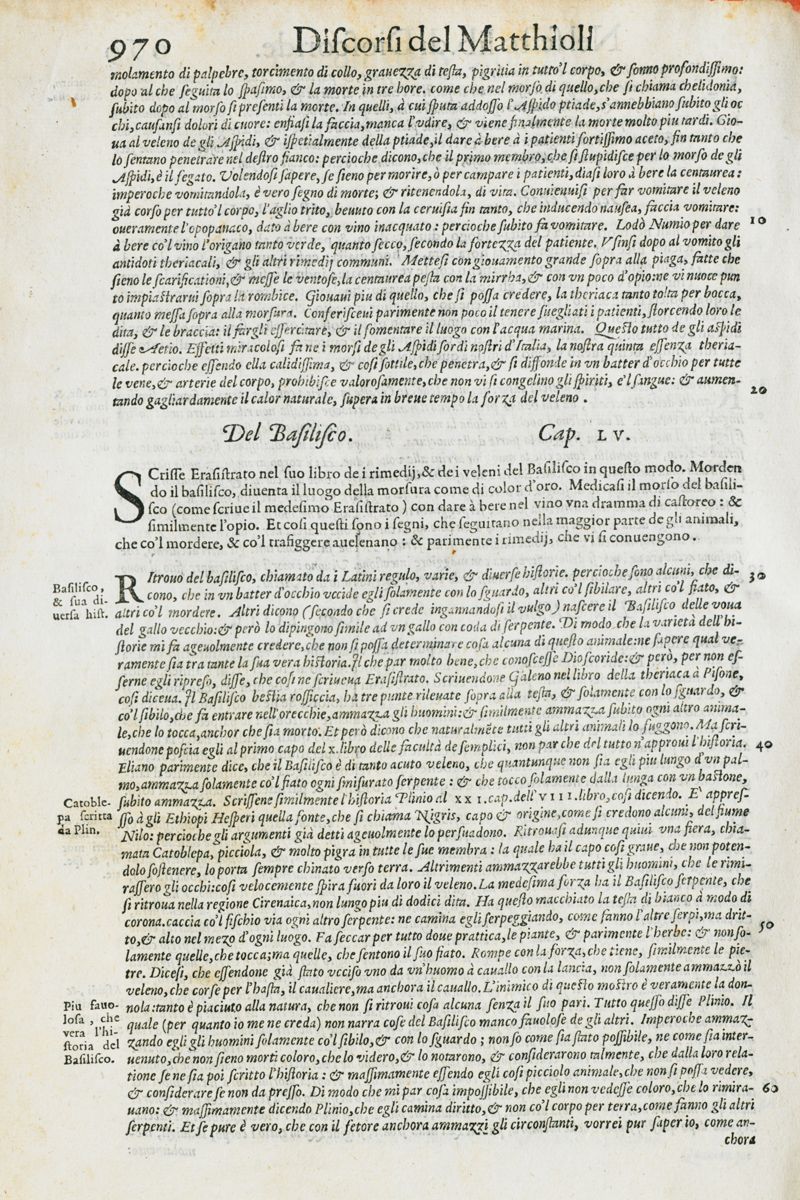 970 Discorsi del Matthioli
molamento di palpebre, torcimento di collo, grauezza di testa, pigritia in tutto'l corpo, & sonno profondissimo:
dopo al che seguita lo spasimo, & la morte in tre hore. come che nel morso di quello, che si chiama chelidonia,
subito dopo al morso si presenti la morte. In quelli, à cui sputa addosso l'Aspido ptiade, s'annebbiano subito gli oc
chi, causansi dolori di cuore: enfiasi la faccia, manca l'vdire, & viene finalmente la morte molto piu tardi. Gio-
ua al veleno de gli Aspidi, & ispetialmente della ptiade, il dare à bere à i patienti fortissimo aceto, fin tanto che
lo sentano penetrare nel destro fianco: percioche dicono, che il primo membro, che si stupidisce per lo morso de gli
Aspidi, è il fegato. Volendosi sapere, se sieno per morire, ò per campare i patienti, diasi loro à bere la centaurea:
imperoche vomitandola, è vero segno di morte; & ritenendola, di vita. Conuienuisi per far vomitare il veleno
già corso per tutto'l corpo, l'aglio trito, beuuto con la ceruisia fin tanto, che inducendo nausea, faccia vomitare:
oueramente l'opopanaco, dato à bere con vino inacquato: percioche subito fa vomitare. Lodò Numio per dare 10
à bere co'l vino l'origano tanto verde, quanto secco, secondo la fortezza del patiente. Vsinsi dopo al vomito gli
antidoti theriacali, & gli altri rimedij communi. Mettesi con giouamento grande sopra alla piaga, fatte che
sieno le scarificationi, & messe le ventose, la centaurea pesta con la mirrha, & con vn poco d'opio: ne vi nuoce pun
to impiastrarui sopra la rombice. Giouaui piu di quello, che si possa credere, la theriaca tanto tolta per bocca,
quanto messa sopra alla morsura. Conferisceui parimente non poco il tenere suegliati i patienti, storcendo loro le
dita, & le braccia: il fargli essercitare, & il fomentare il luogo con l'acqua marina. Questo tutto de gli aspidi
disse Aetio. Effetti miracolosi fa ne i morsi de gli Aspidi sordi nostri d'Italia, la nostra quinta essenza theria-
cale. percioche essendo ella calidissima, & cosi sottile, che penetra, & si diffonde in vn batter d'occhio per tutte
le vene, & arterie del corpo, prohibisce valorosamente, che non vi si congelino gli spiriti, e'l sangue: & aumen- 20
tando gagliardamente il calor naturale, supera in breue tempo la forza del veleno.
Del Basilisco. Cap. LV.
SCrisse Erasistrato nel suo libro de i rimedij, & de i veleni del Basilisco in questo modo. Morden
do il basilisco, diuenta il luogo della morsura come di color d'oro. Medicasi il morso del basili-
sco (come scriue il medesimo Erasistrato) con dare à bere nel vino vna dramma di castoreo: &
similmente l'opio. Et cosi questi sono i segni, che seguitano nella maggior parte de gli animali,
che co'l mordere, & co'l trafiggere auelenano: & parimente i rimedij, che vi si conuengono.
Basilisco,
& sua di-
uersa hist.
RItrouo del basilisco, chiamato da i Latini regulo, varie, & diuerse historie. percioche sono alcuni, che di- 30
cono, che in vn batter d'occhio vccide egli solamente con lo sguardo, altri co'l sibilare, altri co'l fiato, &
altri co'l mordere. Altri dicono (secondo che si crede ingannandosi il vulgo) nascere il Basilisco delle voua
del gallo vecchio: & però lo dipingono simile ad vn gallo con coda di serpente. Di modo che la varietà dell'hi-
storie mi fa ageuolmente credere, che non si possa determinare cosa alcuna di questo animale: ne sapere qual ve-
ramente sia tra tante la sua vera historia. Il che par molto bene, che conoscesse Dioscoride: & però, per non es-
serne egli ripreso, disse, che cosi ne scriueua Erasistrato. Scriuendone Galeno nel libro della theriaca à Pisone,
cosi diceua. Il Basilisco bestia rossiccia, ha tre punte rileuate sopra alla testa, & solamente con lo sguardo, &
co'l sibilo, che fa entrare nell'orecchie, ammazza gli huomini: & similmente ammazza subito ogni altro anima-
le, che lo tocca, anchor che sia morto. Et però dicono che naturalmẽte tutti gli altri animali lo fuggono. Ma scri-
uendone poscia egli al primo capo del x. libro delle facultà de semplici, non par che del tutto n'approui l'historia. 40
Eliano parimente dice, che il Basilisco è di tanto acuto veleno, che quantunque non sia egli piu lungo d'vn pal-
mo, ammazza solamente co'l fiato ogni smisurato serpente: & che tocco solamente dalla lunga con vn bastone,
subito ammazza. Scrissene similmente l'historia Plinio al XXI. cap. dell'VIII. libro, cosi dicendo. E' appres-
Catoble-
pa scritta
da Plin.
so à gli Ethiopi Hesperi quella fonte, che si chiama Nigris, capo & origine, come si credono alcuni, del fiume
Nilo: percioche gli argumenti già detti ageuolmente lo persuadono. Ritrouasi adunque quiui vna fiera, chia-
mata Catoblepa, picciola, & molto pigra in tutte le sue membra: la quale ha il capo cosi graue, che non poten-
dolo sostenere, lo porta sempre chinato verso terra. Altrimenti ammazzarebbe tutti gli huomini, che le rimi-
rassero gli occhi: cosi velocemente spira fuori da loro il veleno. La medesima forza ha il Basilisco serpente, che
si ritroua nella regione Cirenaica, non lungo piu di dodici dita. Ha questo macchiato la testa di bianco à modo di
corona. caccia co'l fischio via ogni altro serpente: ne camina egli serpeggiando, come fanno l'altre serpi, ma drit- 50
to, & alto nel mezo d'ogni luogo. Fa seccar per tutto doue prattica, le piante, & parimente l'herbe: & non so-
lamente quelle, che tocca; ma quelle, che sentono il suo fiato. Rompe con la forza, che tiene, similmente le pie-
tre. Dicesi, che essendone già stato vcciso vno da vn'huomo à cauallo con la lancia, non solamente ammazzò il
veleno, che corse per l'hasta, il caualiere, ma anchora il cauallo. L'inimico di questo mostro è veramente la don-
nola: tanto è piaciuto alla natura, che non si ritroui cosa alcuna senza il suo pari. Tutto questo disse Plinio. Il
Piu fauo-
losa, che
vera l'hi-
storia del
Basilisco.
quale (per quanto io me ne creda) non narra cose del Basilisco manco fauolose de gli altri. Imperoche ammaz-
zando egli gli huomini solamente co'l sibilo, & con lo sguardo; non so come sia stato possibile, ne come sia inter-
uenuto, che non sieno morti coloro, che lo videro, & lo notarono, & considerarono talmente, che dalla loro rela-
tione se ne sia poi scritto l'historia: & massimamente essendo egli cosi picciolo animale, che non si possa vedere,
& considerare se non da presso. Di modo che mi par cosa impossibile, che egli non vedesse coloro, che lo rimira- 60
uano: & massimamente dicendo Plinio, che egli camina diritto, & non co'l corpo per terra, come fanno gli altri
serpenti. Et se pure è vero, che con il fetore anchora ammazzi gli circonstanti, vorrei pur saper io, come an-
chora